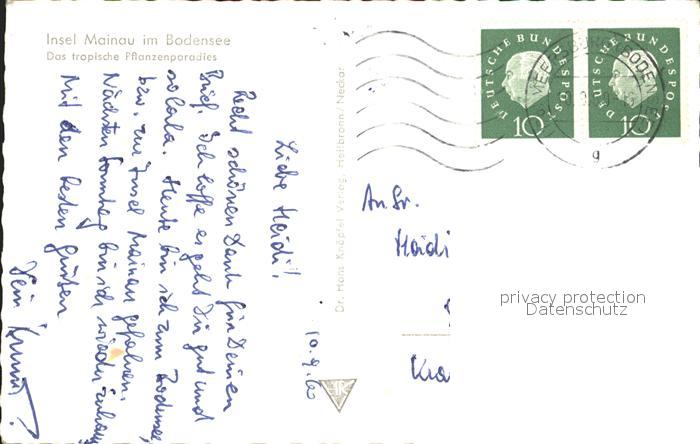 Insel Mainau im Bodensee
Das tropische Pflanzenparadies
10.9.60
Liebe Heidi!
Recht schönen Dank für Deinen
Brief. Ich hoffe es geht Dir gut und
solala. Heute bin ich zum Bodensee,
bzw. zur Insel Mainau gefahren.
Nächsten Sonntag bin ich wieder zuhause
Mit den besten Grüßen
Dein
Dr. Hans Knöpfel Verlag, Heilbronn/Neckar
DEUTSCHE BUNDESPOST
10
DEUTSCHE BUNDESPOST
10
MEERSBURG BODENSEE
g
An Fr.
Heidi
privacy protection
Datenschutz